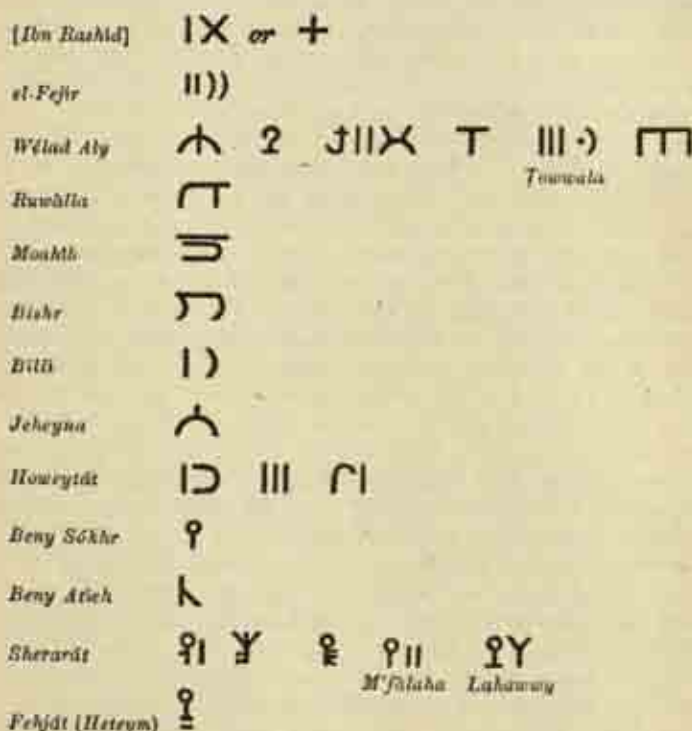 [Ibn Rashid] or
el-Fejir
Wélad Aly
Towwala
Ruwàlla
Moahîb
Bishr
Billî
Jeheyna
Howeytát
Beny Sókhr
Beny Atîeh
Sherarát
M'fûlaha Lahawwy
Fehját (Heteym)